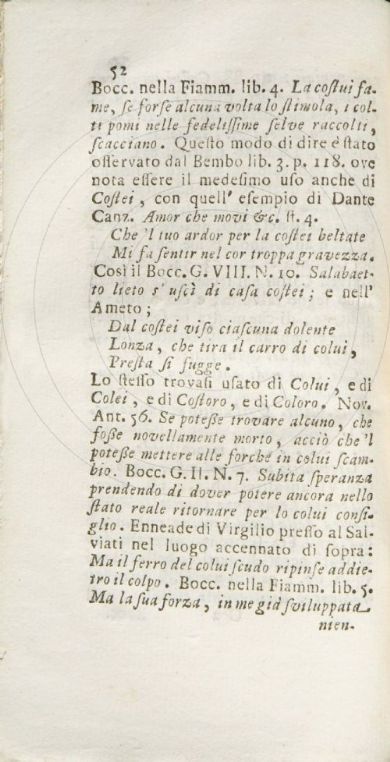 52
Bocc. nella Fiamm. lib. 4. La coſtui fa-
me, ſe forſe alcuna volta lo ſtimola, i col-
ti pomi nelle fedeliſſime ſelve raccolti,
ſcacciano. Queſto modo di dire è ſtato
oſſervato dal Bembo lib. 3. p. 118. ove
nota eſſere il medeſimo uſo anche di
Coſtei, con quell' eſempio di Dante
Canz. Amor che movi &c. ſt. 4.
Che 'l tuo ardor per la coſtei beltate
Mi fa ſentir nel cor troppa gravezza.
Così il Bocc. G. VIII. N. 10. Salabaet-
to lieto s' uſcì di caſa coſtei; e nell'
Ameto;
Dal coſtei viſo ciaſcuna dolente
Lonza, che tira il carro di colui,
Preſta ſi fugge.
Lo ſteſſo trovaſi uſato di Colui, e di
Colei, e di Coſtoro, e di Coloro. Nov.
Ant. 56. Se poteße trovare alcuno, che
foße novellamente morto, acciò che 'l
poteße mettere alle forche in colui ſcam-
bio. Bocc. G. II. N. 7. Subita ſperanza
prendendo di dover potere ancora nello
ſtato reale ritornare per lo colui conſi-
glio. Enneade di Virgilio preſſo al Sal-
viati nel luogo accennato di ſopra:
Ma il ferro del colui ſcudo ripinſe addie-
tro il colpo. Bocc. nella Fiamm. lib. 5.
Ma la ſua forza, in me già ſviluppata
nien-